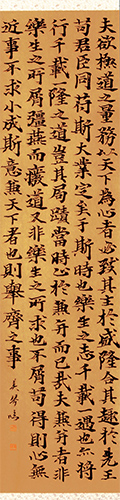 夫欲極道之量務以天下為心者必致其主於盛隆合其趣於先王
苟君臣同符斯大業定矣于斯時也樂生之志千載一遇也亦將
行千載隆之道豈其局蹟當時止於兼并而已哉夫兼并者非
樂生之所屑彊燕而廢道又非樂生之所求也不屑苟得則心無
近事不求小成斯意兼天下者也則舉齊之事